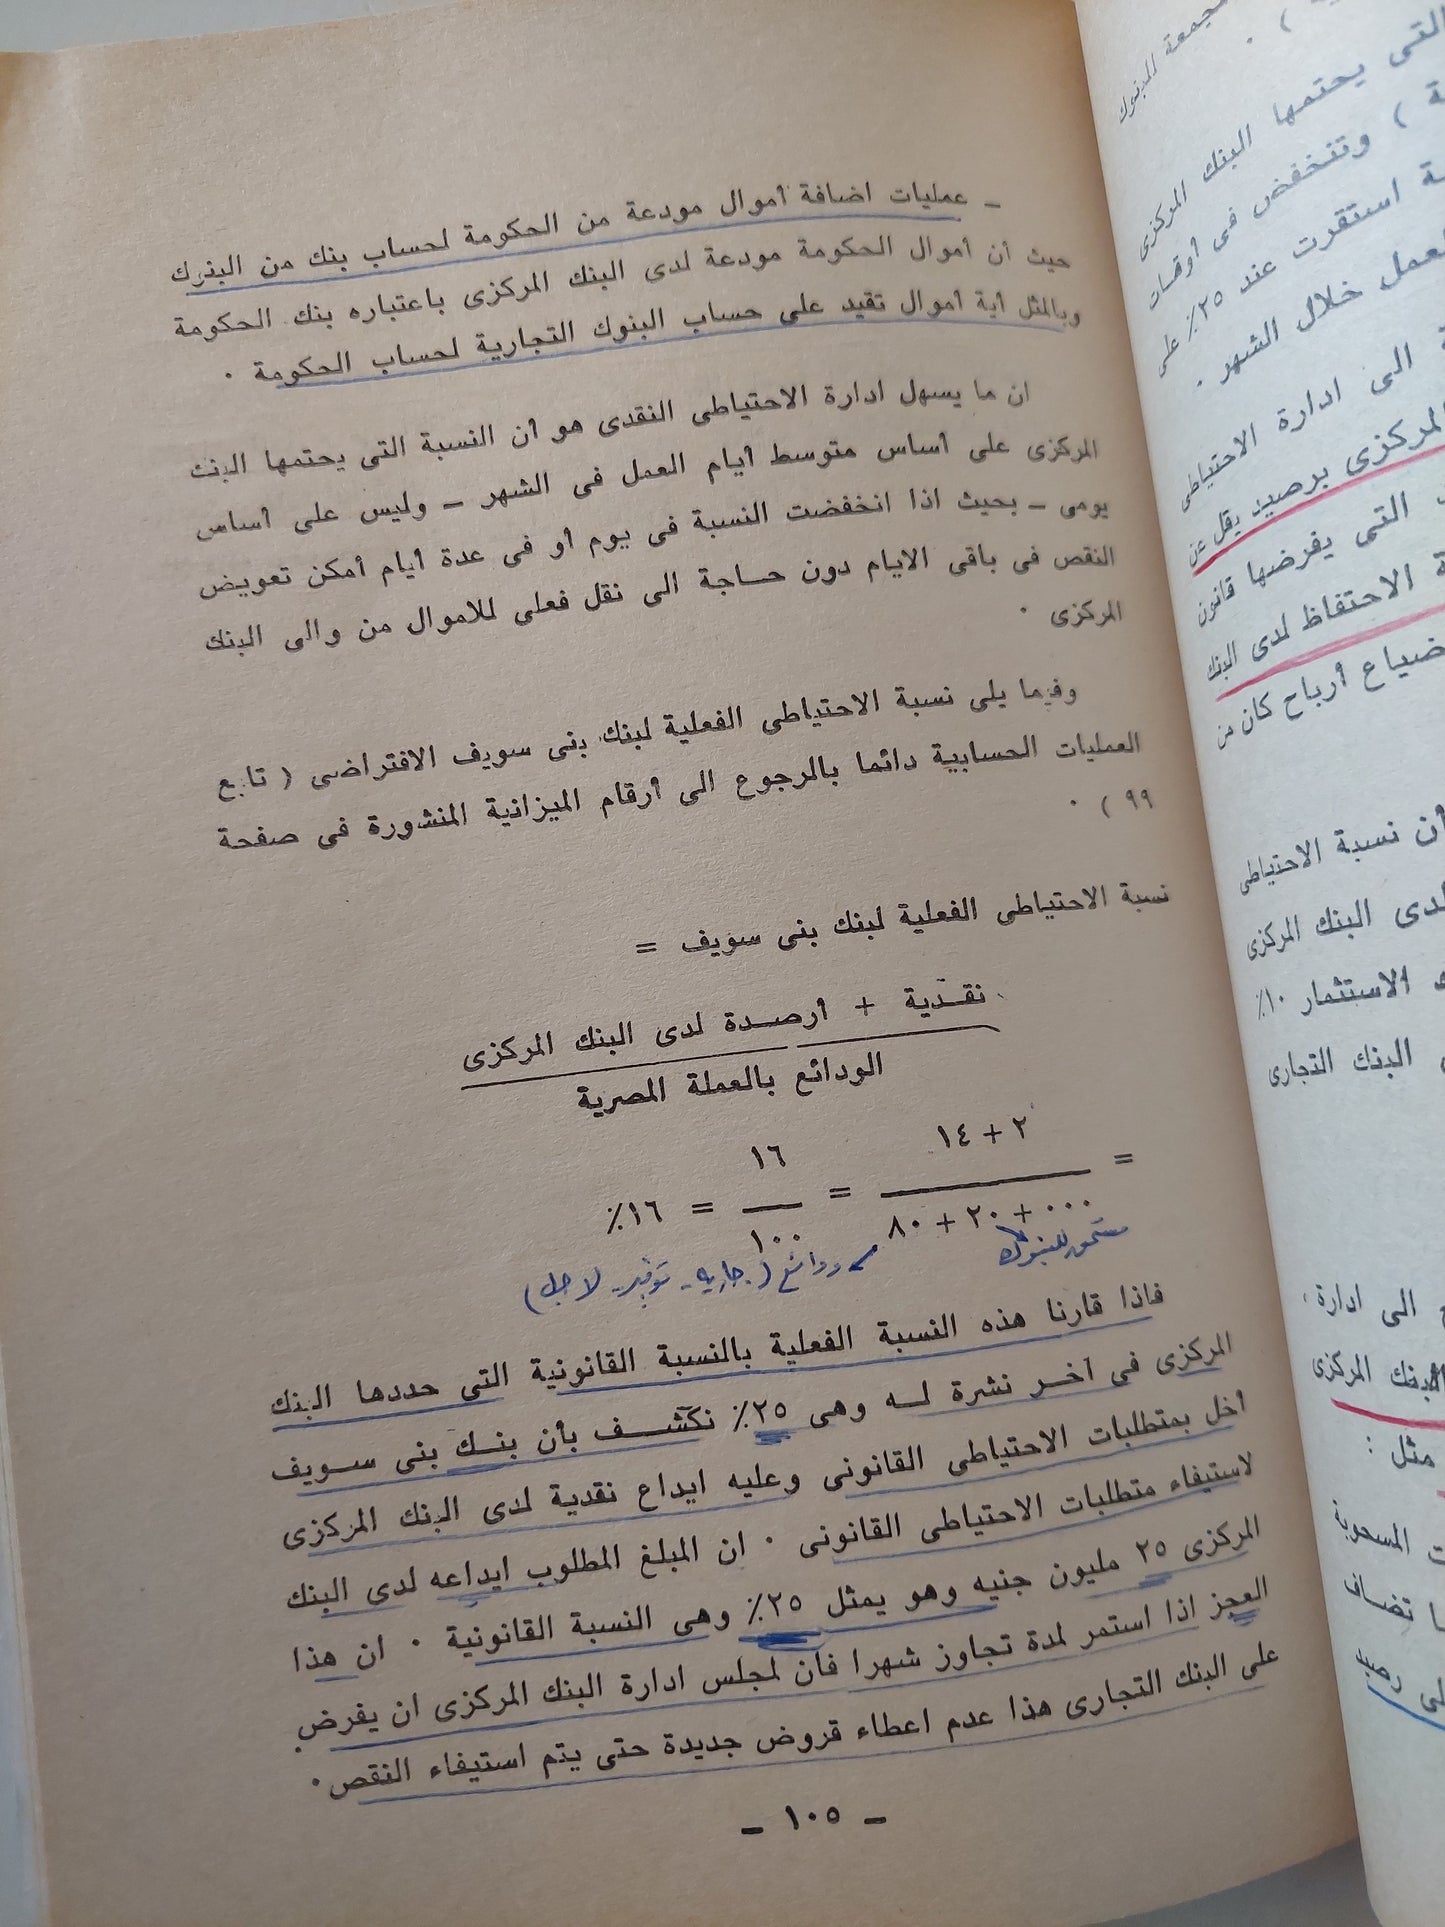 ـ عمليات اضافة أموال مودعة من الحكومة لحساب بنك من البنوك
حيث أن أموال الحكومة مودعة لدى البنك المركزى باعتباره بنك الحكومة
وبالمثل أية أموال تقيد على حساب البنوك التجارية لحساب الحكومة ٠
ان ما يسهل ادارة الاحتياطى النقدى هو أن النسبة التى يحتمها البنك
المركزى على أساس متوسط أيام العمل فى الشهر ـ وليس على أساس
يومى ـ بحيث اذا انخفضت النسبة فى يوم أو فى عدة أيام أمكن تعويض
النقص فى باقى الايام دون حاجة الى نقل فعلى للاموال من والى البنك
المركزى ٠
وفيما يلى نسبة الاحتياطى الفعلية لبنك بنى سويف الافتراضى ( تابع
العمليات الحسابية دائما بالرجوع الى أرقام الميزانية المنشورة فى صفحة
٩٩ ) ٠
نسبة الاحتياطى الفعلية لبنك بنى سويف =
نقدية + أرصدة لدى البنك المركزى
الودائع بالعملة المصرية
٢ + ١٤
١٦
= = = ١٦٪
٠٠٠ + ٢٠ + ٨٠
١٠٠
مستحق للبنوك
ودائع (جارية - توفير - لاجل)
فاذا قارنا هذه النسبة الفعلية بالنسبة القانونية التى حددها البنك
المركزى فى آخر نشرة له وهى ٢٥٪ نكتشف بأن بنك بنى سويف
أخل بمتطلبات الاحتياطى القانونى وعليه ايداع نقدية لدى البنك المركزى
لاستيفاء متطلبات الاحتياطى القانونى ٠ ان المبلغ المطلوب ايداعه لدى البنك
المركزى ٢٥ مليون جنيه وهو يمثل ٢٥٪ وهى النسبة القانونية ٠ ان هذا
العجز اذا استمر لمدة تجاوز شهرا فان لمجلس ادارة البنك المركزى ان يفرض
على البنك التجارى هذا عدم اعطاء قروض جديدة حتى يتم استيفاء النقص ٠
ـ ١٠٥ ـ
مجمعة للبنوك
التى يحتمها البنك المركزى
) وتنخفض فى أوقات
استقرت عند ٢٥٪ على
خلال الشهر ٠
الى ادارة الاحتياطى
المركزى برصيد يقل عن
التى يفرضها قانون
الاحتفاظ لدى البنك
ضياع أرباح كان من
أن نسبة الاحتياطى
لدى البنك المركزى
الاستثمار ١٠٪
البنك التجارى
الى ادارة
البنك المركزى
مثل :
المسحوبة
تضاف
رصيد